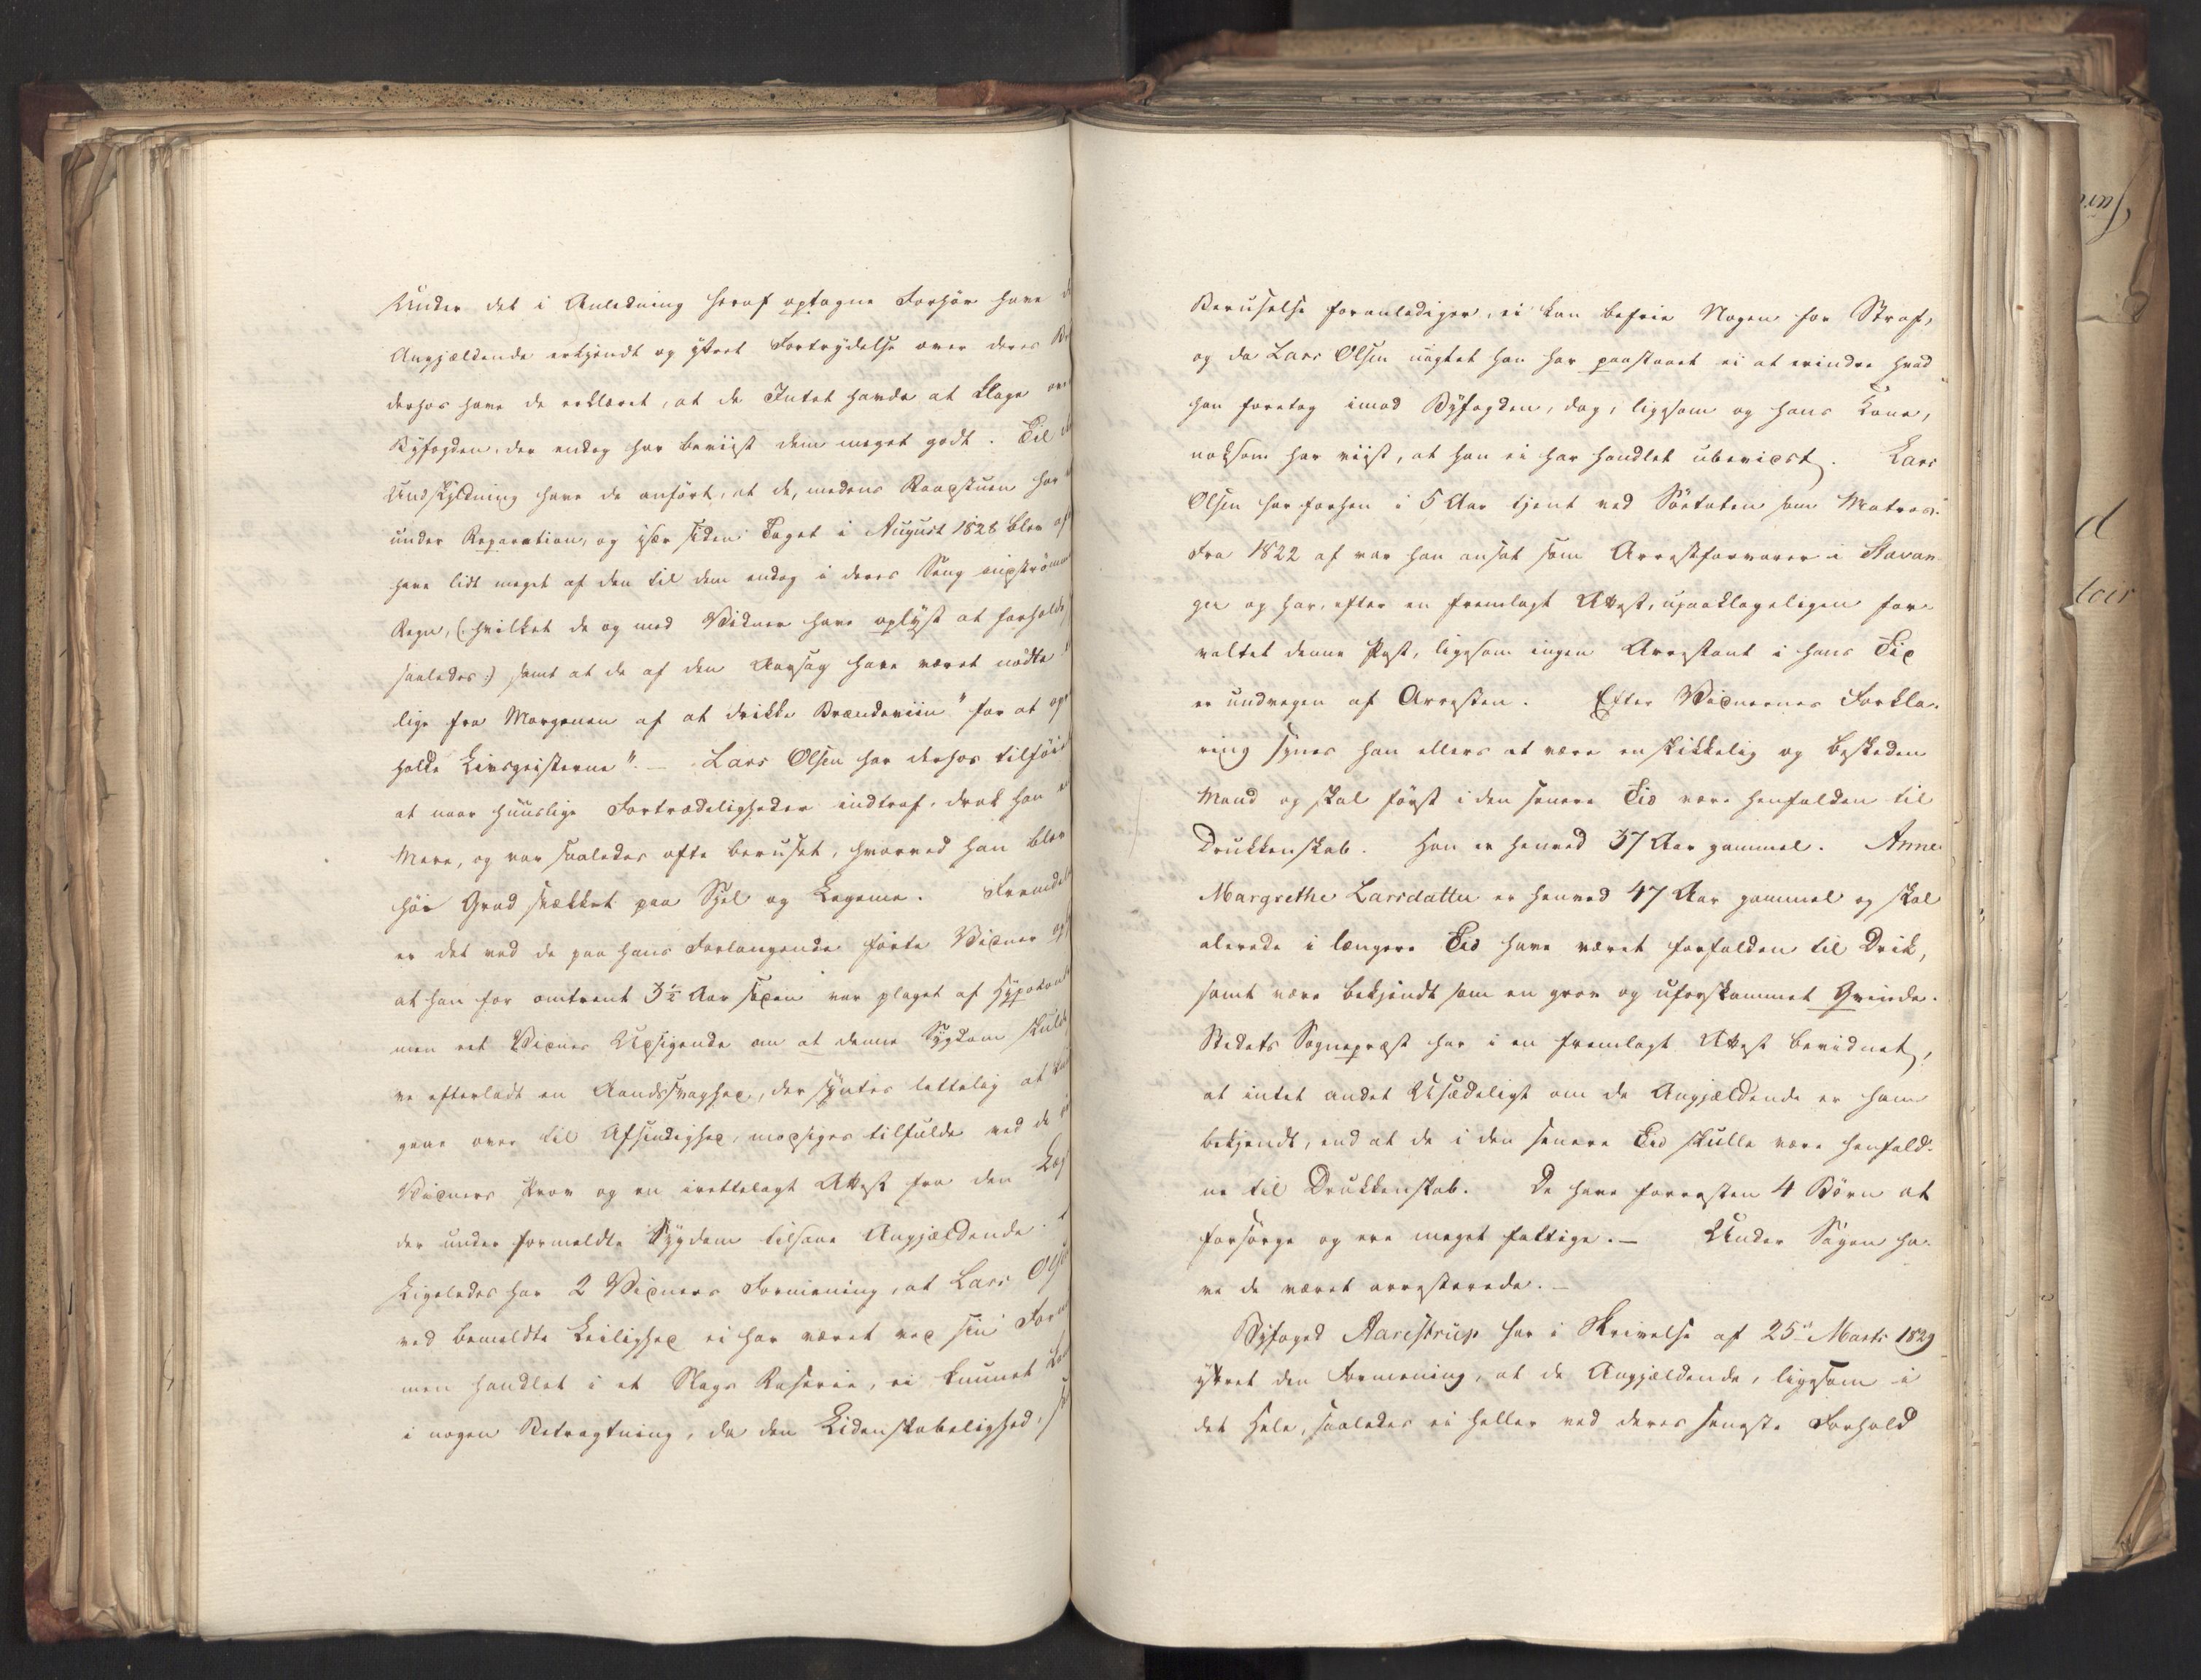 Under det i Anledning heraf optagne Forhör have
Angjældende erkjendt og yttret Fortrydelse over deres
derhos have de erklæret, at de Intet havde at klage
Byfogden, der endog har beviist dem meget godt. Til
Undskyldning have de anført, at de, medens Raadstuen har
under Reparation, og især siden Taget i August 1828 blev
have lidt meget af den til dem endog i deres Seng
Regn, (: hvilket de og med Vidner have oplyst at forholde
saaledes :) samt at de af den Aarsag have været nödte
lige fra Morgenen af at drikke Brændeviin "for at
holde Livsgeisterne". — Lars Olsen har derhos tilföiet
at naar huuslige Fortrædeligheder indtraf, drak han
Mere, og var saaledes ofte beruset, hvorved han blev
höi Grad svækket paa Sjel og Legeme. Fremdeles
er det ved de paa hans Forlangende förte Vidner
at han for omtrent 3½ Aar siden var plaget af
men eet Vidnes Udsigende om at denne Sygdom skulde
ve efterladt en Aandssvaghed, der syntes lettelig at
gaae over til Afsindighed, modsiges tilfulde ved de
Vidners Prov og en irettelagt Attest fra den
der under formeldte Sygdom tilsaae Angjældende.
Ligeledes har 2 Vidners Formening, at Lars Olsen
ved bemeldte Leilighed ei har været ved sin
men handlet i et Slags Raserie, ei kunnet
i nogen Betragtning, da den Lidenskabelighed,
Beruselse foranlediger, ei kan befrie Nogen for Straf,
og da Lars Olsen uagtet han har paastaaet ei at erindre hvad
han foretog imod Byfogden, dog, ligesom og hans Kone,
noksom har viist, at han ei har handlet ubevidst. Lars
Olsen har forhen i 5 Aar tjent ved Söetaten som Matros.
Fra 1822 af var han ansat som Arrestforvarer i Stavan-
ger og har, efter en fremlagt Attest, upaaklageligen for-
valtet denne Post, ligesom ingen Arrestant i hans Tid
er undvegen af Arresten. Efter Vidnernes Forkla-
ring synes han ellers at være en skikkelig og beskeden
Mand og skal først i den senere Tid være henfalden til
Drukkenskab. Han er henved 37 Aar gammel. Anne
Margrethe Larsdatter er henved 47 Aar gammel og skal
alerede i længere Tid have været forfalden til Drik,
samt være bekjendt som en grov og uforskammet Qvinde.
Stedets Sognepræst har i en fremlagt Attest bevidnet,
at intet andet Usædeligt om de Angjældende er ham
bekjendt, end at de i den senere Tid skulle være henfald-
ne til Drukkenskab. De have forresten 4 Börn at
forsörge og ere meget fattige. — Under Sagen ha-
ve de været arresterede. —
Byfoged Aarestrup har i Skrivelse af 25de Marts 1829
yttret den Formening, at de Angjældende, ligesom i
det Hele, saaledes ei heller ved deres seneste Forhold